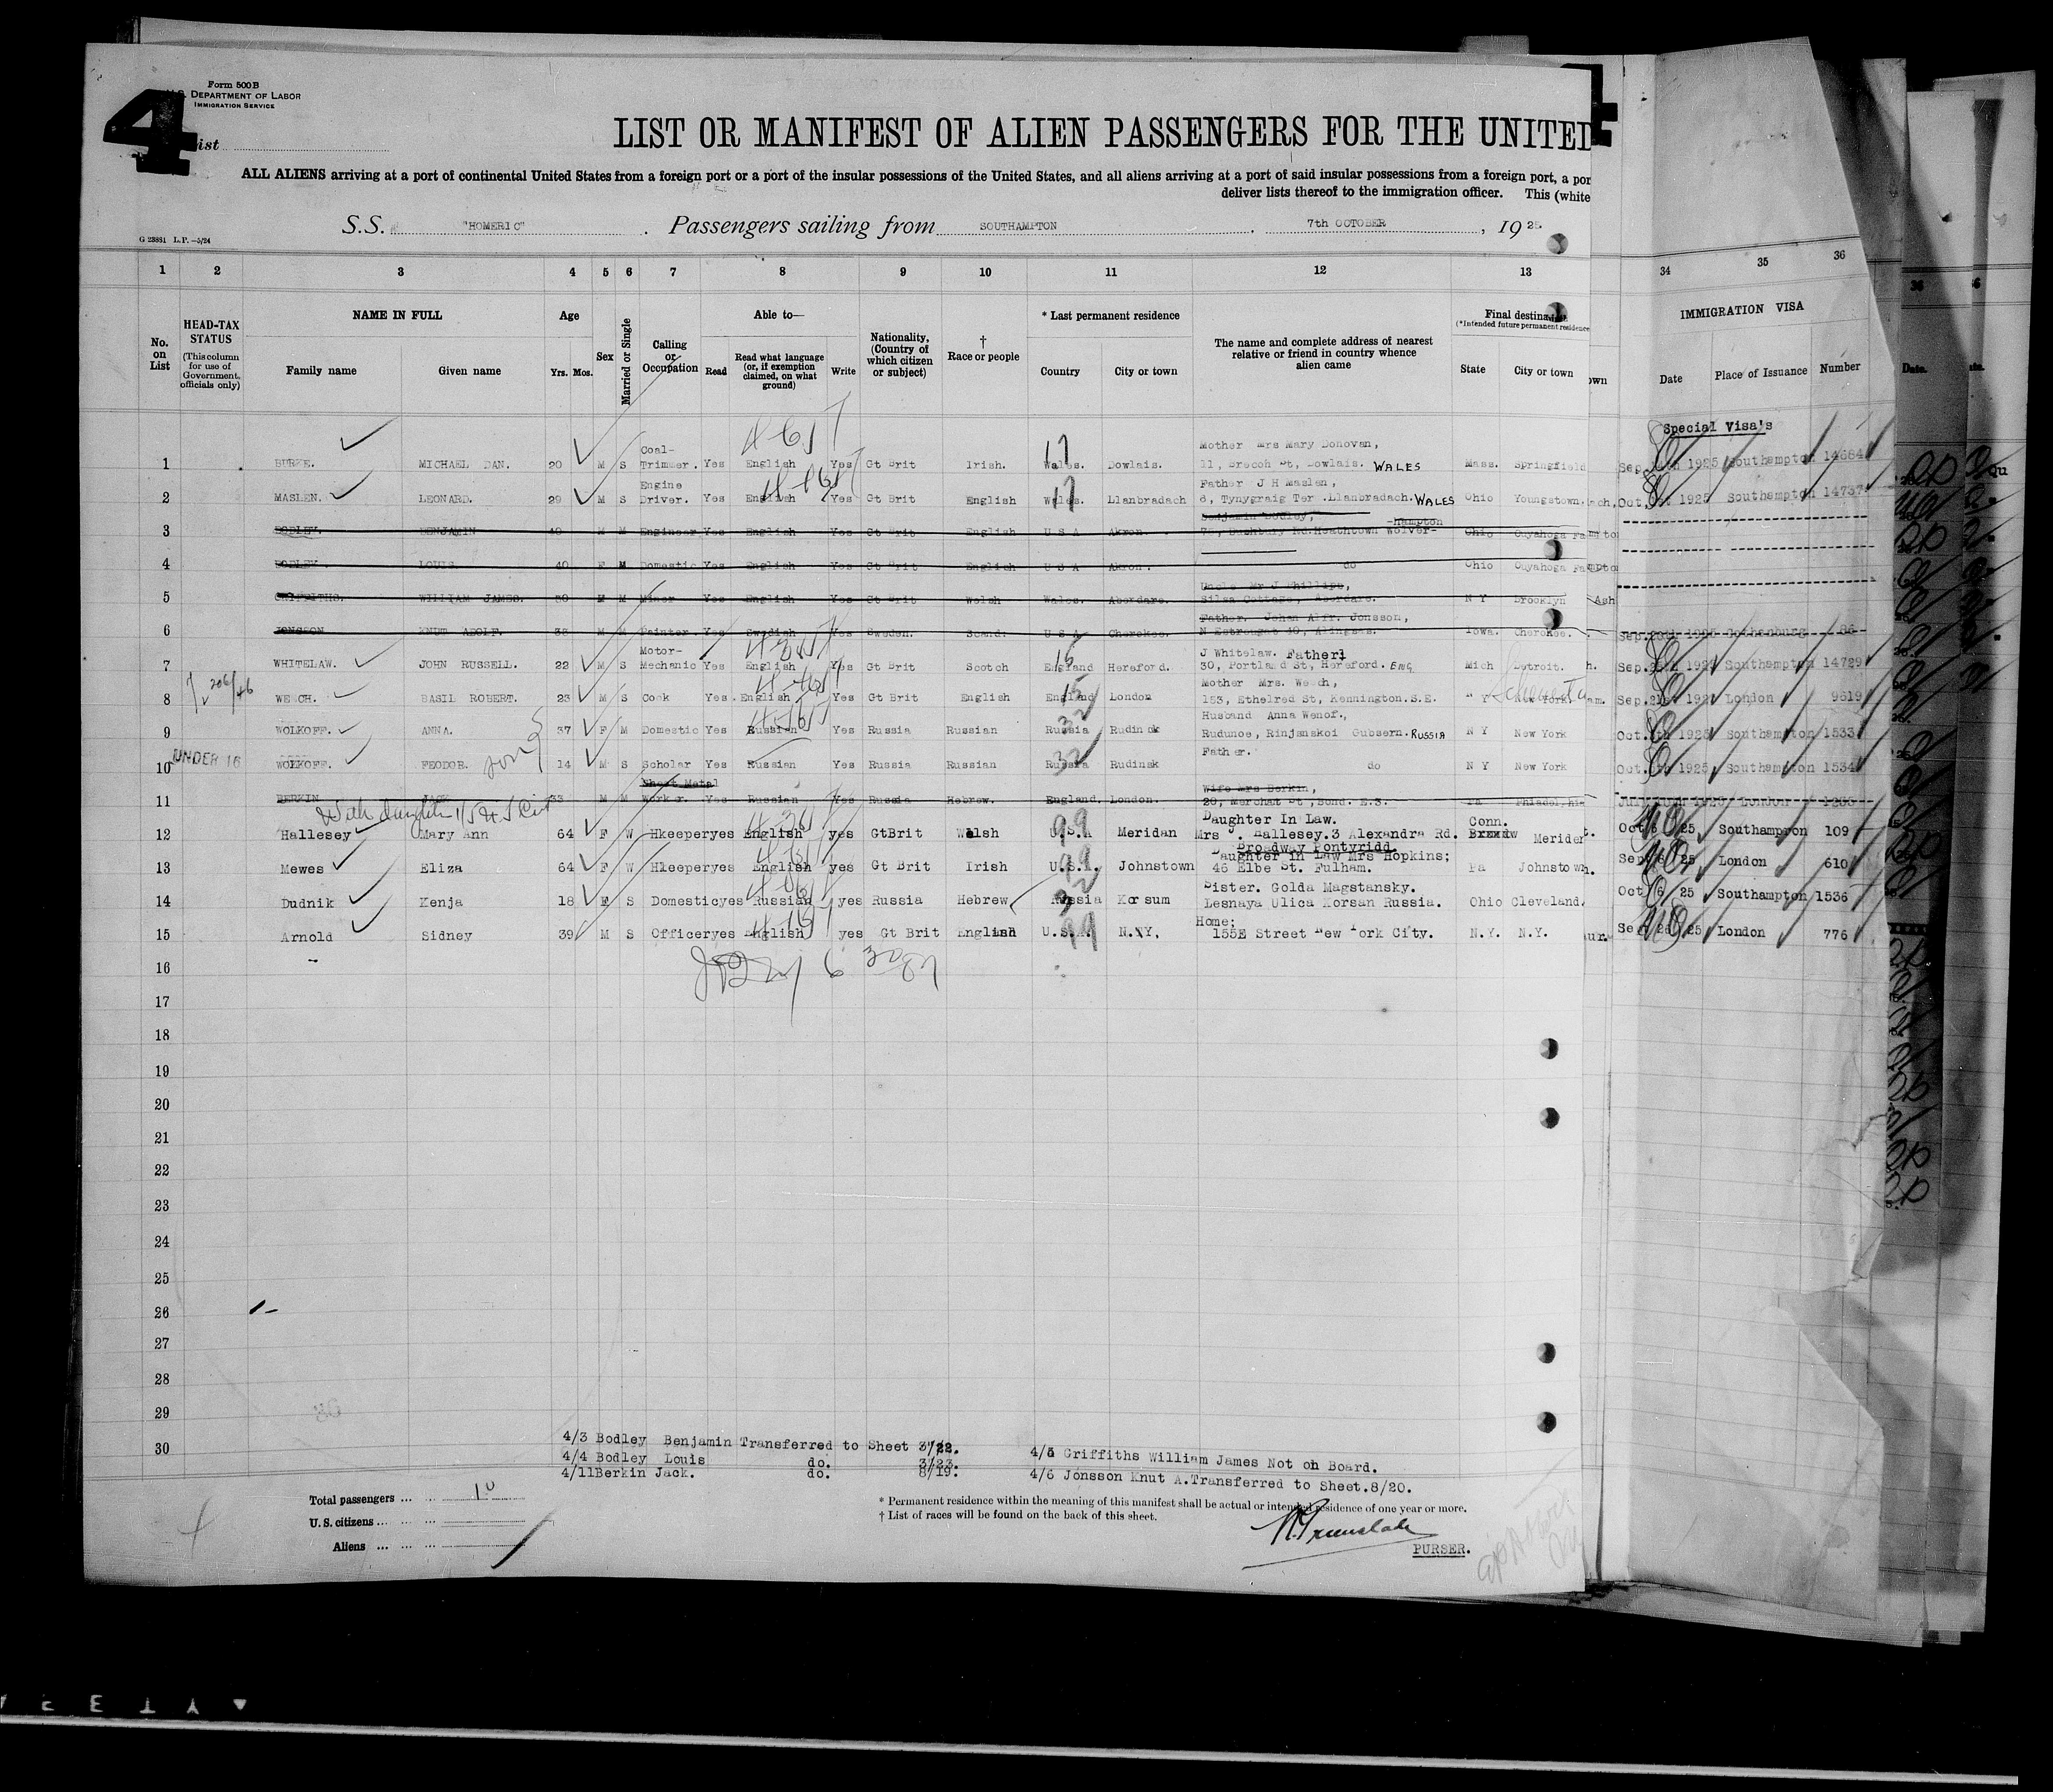 4
Form 500B
DEPARTMENT OF LABOR
IMMIGRATION SERVICE
ist
LIST OR MANIFEST OF ALIEN PASSENGERS FOR THE UNITED
ALL ALIENS arriving at a port of continental United States from a foreign port or a port of the insular possessions of the United States, and all aliens arriving at a port of said insular possessions from a foreign port, a por
deliver lists thereof to the immigration officer. This (white
S.S. "HOMERIC" . Passengers sailing from SOUTHAMPTON . 7th OCTOBER , 19 25.
G 23881 L.P.—5/24
1 2 3 4 5 6 7 8 9 10 11 12 13 34 35 36
No. on List
HEAD-TAX STATUS
(This column for use of Government officials only)
NAME IN FULL
Family name Given name
Age
Yrs. Mos.
Sex
Married or Single
Calling or Occupation
Able to—
Read
Read what language (or, if exemption claimed, on what ground)
Write
Nationality, (Country of which citizen or subject)
† Race or people
* Last permanent residence
Country City or town
The name and complete address of nearest relative or friend in country whence alien came
Final destina
(*Intended future permanent residence
State City or town
IMMIGRATION VISA
Date Place of Issuance Number
Special Visa's
1 BURKE. MICHAEL DAN. 20 M S Coal-Trimmer. Yes English Yes Gt Brit Irish. Wales. Dowlais. Mother Mrs Mary Donovan,
11, Brecon St, Dowlais. WALES Mass. Springfield Sep. 1925 Southampton 14684
2 MASLEN. LEONARD. 29 M S Engine Driver. Yes English Yes Gt Brit English Wales. Llanbradach Father J H Maslen,
8, Tynygraig Ter .Llanbradach. WALES Ohio Youngstown. Oct. 1925 Southampton 14737
3 BODLEY. BENJAMIN 40 M M Engineer Yes English Yes Gt Brit English U S A Akron. Benjamin Bodley,
Rd. Heathtown Wolver-hampton Ohio Cuyahoga Fa
4 BODLEY. LOUIS. 40 F M Domestic Yes English Yes Gt Brit English U S A Akron. do Ohio Cuyahoga Fa
5 GRIFFITHS. WILLIAM JAMES. M M Miner Yes English Yes Gt Brit Welsh Wales. Aberdare. Uncle Mr J Phillips,
Silsa Cottage, Aberdare. N Y Brooklyn
6 JONSSON KNUT ADOLF. 38 M M Painter. Yes Swedish Yes Sweden. Scand: U S A Cherokee. Father. Johan Alfr. Jonsson,
40, Alingsas. Iowa. Cherokee. Sep. 1925 Gothenburg 86
7 WHITELAW. JOHN RUSSELL. 22 M S Motor-Mechanic Yes English Yes Gt Brit Scotch England Hereford. J Whitelaw. Father
30, Portland St, Hereford. ENG Mich Detroit. Sep. 1925 Southampton 14729
8 BASIL ROBERT. 23 M S Cook Yes English Yes Gt Brit English England London Mother Mrs.
153, Ethelred St, Kennington.S.E. N Y New York. Sep. 1925 London 9619
9 WOLKOFF. ANNA. 37 F M Domestic Yes Russian Yes Russia Russian Russia Rudinsk Husband Anna Wenof.,
Rudunoe, Rinjanskoi Gubsern. RUSSIA N Y New York Oct. 1925 Southampton 1533
UNDER 16
10 WOLKOFF. FEODOR. 14 M S Scholar Yes Russian Yes Russia Russian Russia Rudinsk Father.
do N Y New York Oct. 1925 Southampton 1534
11 BERKIN JACK 33 M M Sheet Metal Worker. Yes Russian Yes Russia Hebrew. England. London. Wife Mrs Berkin,
20, Merchant St, Bond. E.S. Pa Philadelphia London
12 Hallesey Mary Ann 64 F W Hkeeper yes English yes GtBrit Welsh U.S.A Meridan Daughter In Law.
Mrs J. Hallesey.3 Alexandra Rd. Broadway Pontyridd. Conn. Meriden Oct 6 25 Southampton 109
13 Mewes Eliza 64 F W Hkeeper yes English yes Gt Brit Irish U.S.A. Johnstown Daughter in Law Mrs Hopkins;
46 Elbe St. Fulham. Pa Johnstown. Sep 25 London 610
14 Dudnik Kenja 18 F S Domestic yes Russian yes Russia Hebrew Russia Korsum Sister. Golda Magstansky.
Lesnaya Ulica Korsan Russia. Ohio Cleveland. Oct 6 25 Southampton 1536
15 Arnold Sidney 39 M S Officer yes English yes Gt Brit English U.S.A. N.Y. Home;
155E Street New York City. N.Y. N.Y. Sep 26 25 London 776
16
17
18
19
20
21
22
23
24
25
26
27
28
29
30
4/3 Bodley Benjamin Transferred to Sheet 3/22.
4/4 Bodley Louis do. 3/23.
4/11Berkin Jack. do. 8/19.
4/5 Griffiths William James Not on Board.
4/6 Jonsson Knut A.Transferred to Sheet.8/20.
Total passengers ... 10
U. S. citizens ...
Aliens ...
* Permanent residence within the meaning of this manifest shall be actual or intended residence of one year or more.
† List of races will be found on the back of this sheet.
PURSER.